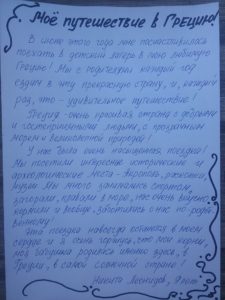 Моё путешествие в Грецию!
В июне этого года мне посчастливилось
поехать в детский лагерь в мою любимую
Грецию! Мы с родителями каждый год
ездим в эту прекрасную страну, и, каждый
раз, что - удивительное путешествие!
Греция - очень красивая страна с добрыми
и гостеприимными людьми, с прозрачным
морем и великолепной природой!
У нас была очень насыщенная поездка!
Мы посетили интересные исторические и
археологические места - Акрополь,
музеи. Мы много занимались спортом,
загорали, плавали в море, нас очень вкусно
кормили и вообще, заботились о нас по-
Эта поездка навсегда останется в моем
сердце и я очень горжусь, что мои корни,
моя бабушка родилась именно здесь, в
Греции, в самой солнечной стране!
Никита